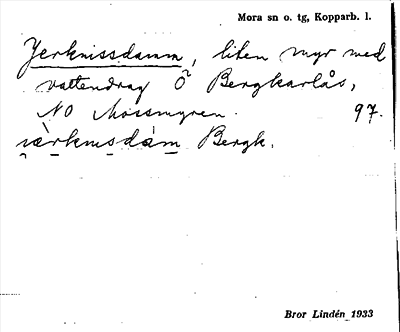 Mora sn o. tg, Kopparb. l.
Jerknissdamm, liten myr med
vattendrag Ö Bergkarlås,
NO Mossmyren. 97.
i̯ä̀rknɩsdám Bergk.
Bror Lindén 1933